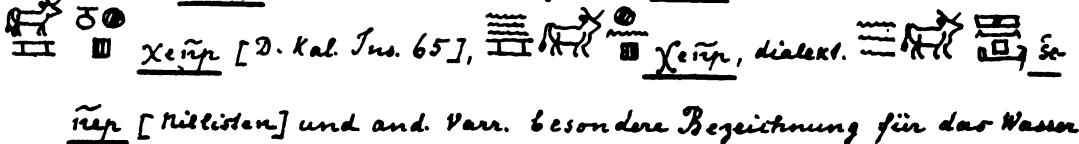 χeñp [D. Kal. Ins. 65], χeñp, dialekt. , še-
ñep [Nillisten] und and. Varr. besondere Bezeichnung für das Wasser